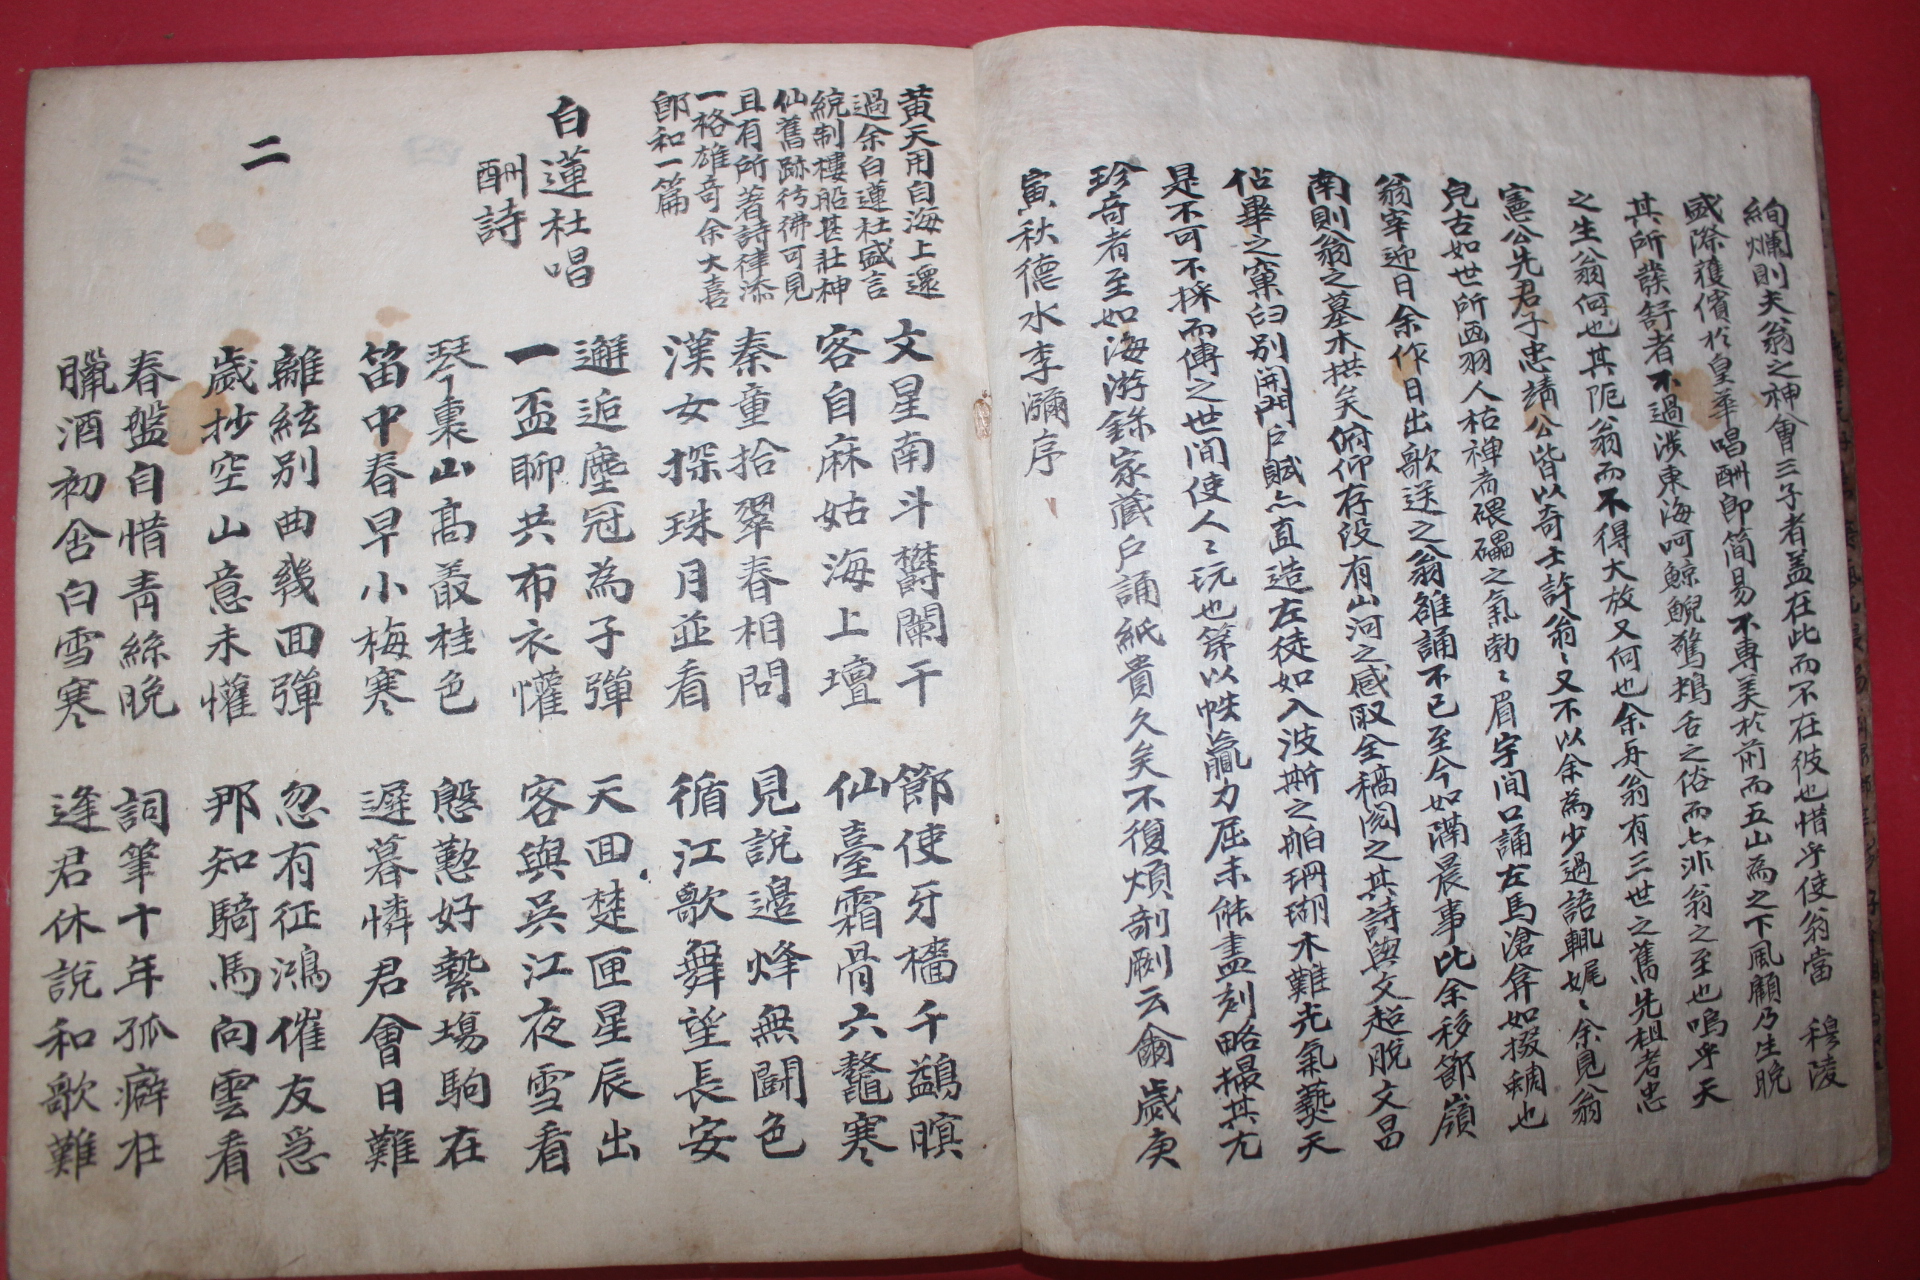 絢爛則夫翁之神會三子者盖在此而不在彼也惜乎使翁當　穆陵
盛際獲儐於皇華唱酬即簡易不專美於前而五山為之下風顧乃生晩
其所發舒者不過渉東海呵鯨鯢驚鴂舌之俗而亦非翁之至也嗚乎天
之生翁何也其阨翁而不得大放又何也余再翁有三世之舊先祖者忠
憲公先君子忠靖公皆以奇士許翁翁又不以余為少過語輒娓娓余見翁
皃古如世所画羽人枯禅者磈礧之氣勃勃眉宇間口誦左馬滄弇如掇蜩也
翁宰迎日余作日出歌送之翁雒誦不已至今如隔晨事此余移節嶺
南則翁之墓木拱矣俯仰存没有山河之感取全稿閲之其詩與文超脱文昌
佔畢之窠臼別開門戶賦亦直造左徒如入波斯之舶珊瑚木難光氣爇天
是不可不採而傳之世間使人人玩也第以帙贏力屈未能盡刻略撮其尤
珍奇者至如海游錄家藏戶誦紙貴久矣不復煩剞劂云爾歲庚
寅秋德水李瀰序
黄天用自海上還
過余白蓮社盛言
統制樓船甚壯神
仙舊跡彷彿可見
且有所著詩律添
一格雄奇余大喜
郎和一篇
白蓮社唱
酬詩
二
文星南斗欝闌干　節使牙檣千鷁暝
客自麻姑海上壇　仙臺霜骨六鼇寒
秦童拾翠春相問　見說邊烽無闘色
漢女探珠月並看　循江歌舞望長安
邂逅塵冠為子彈　天回楚匣星辰出
一盃聊共布衣懽　客與吳江夜雪看
琴裏山高叢桂色　慇懃好縶場駒在
笛中春早小梅寒　遲暮憐君會日難
離絃別曲幾回彈　忽有征鴻催友為
歲抄空山意未懽　那知騎馬向雲看
春盤自惜青絲晩　詞筆十年孤癖在
臘酒初含白雪寒　逢君休說和歌難